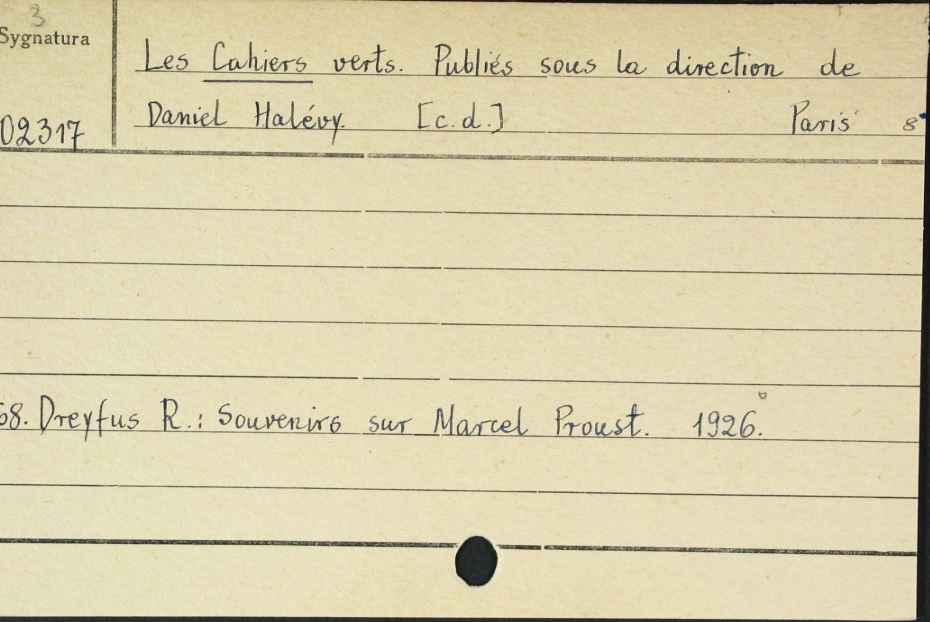 3
Sygnatura
Les Cahiers verts. Publiés sous la direction de
Daniel Halévy. [c.d.] Paris 8°
02317
68. Dreyfus R.: Souvenirs sur Marcel Proust. 1926.